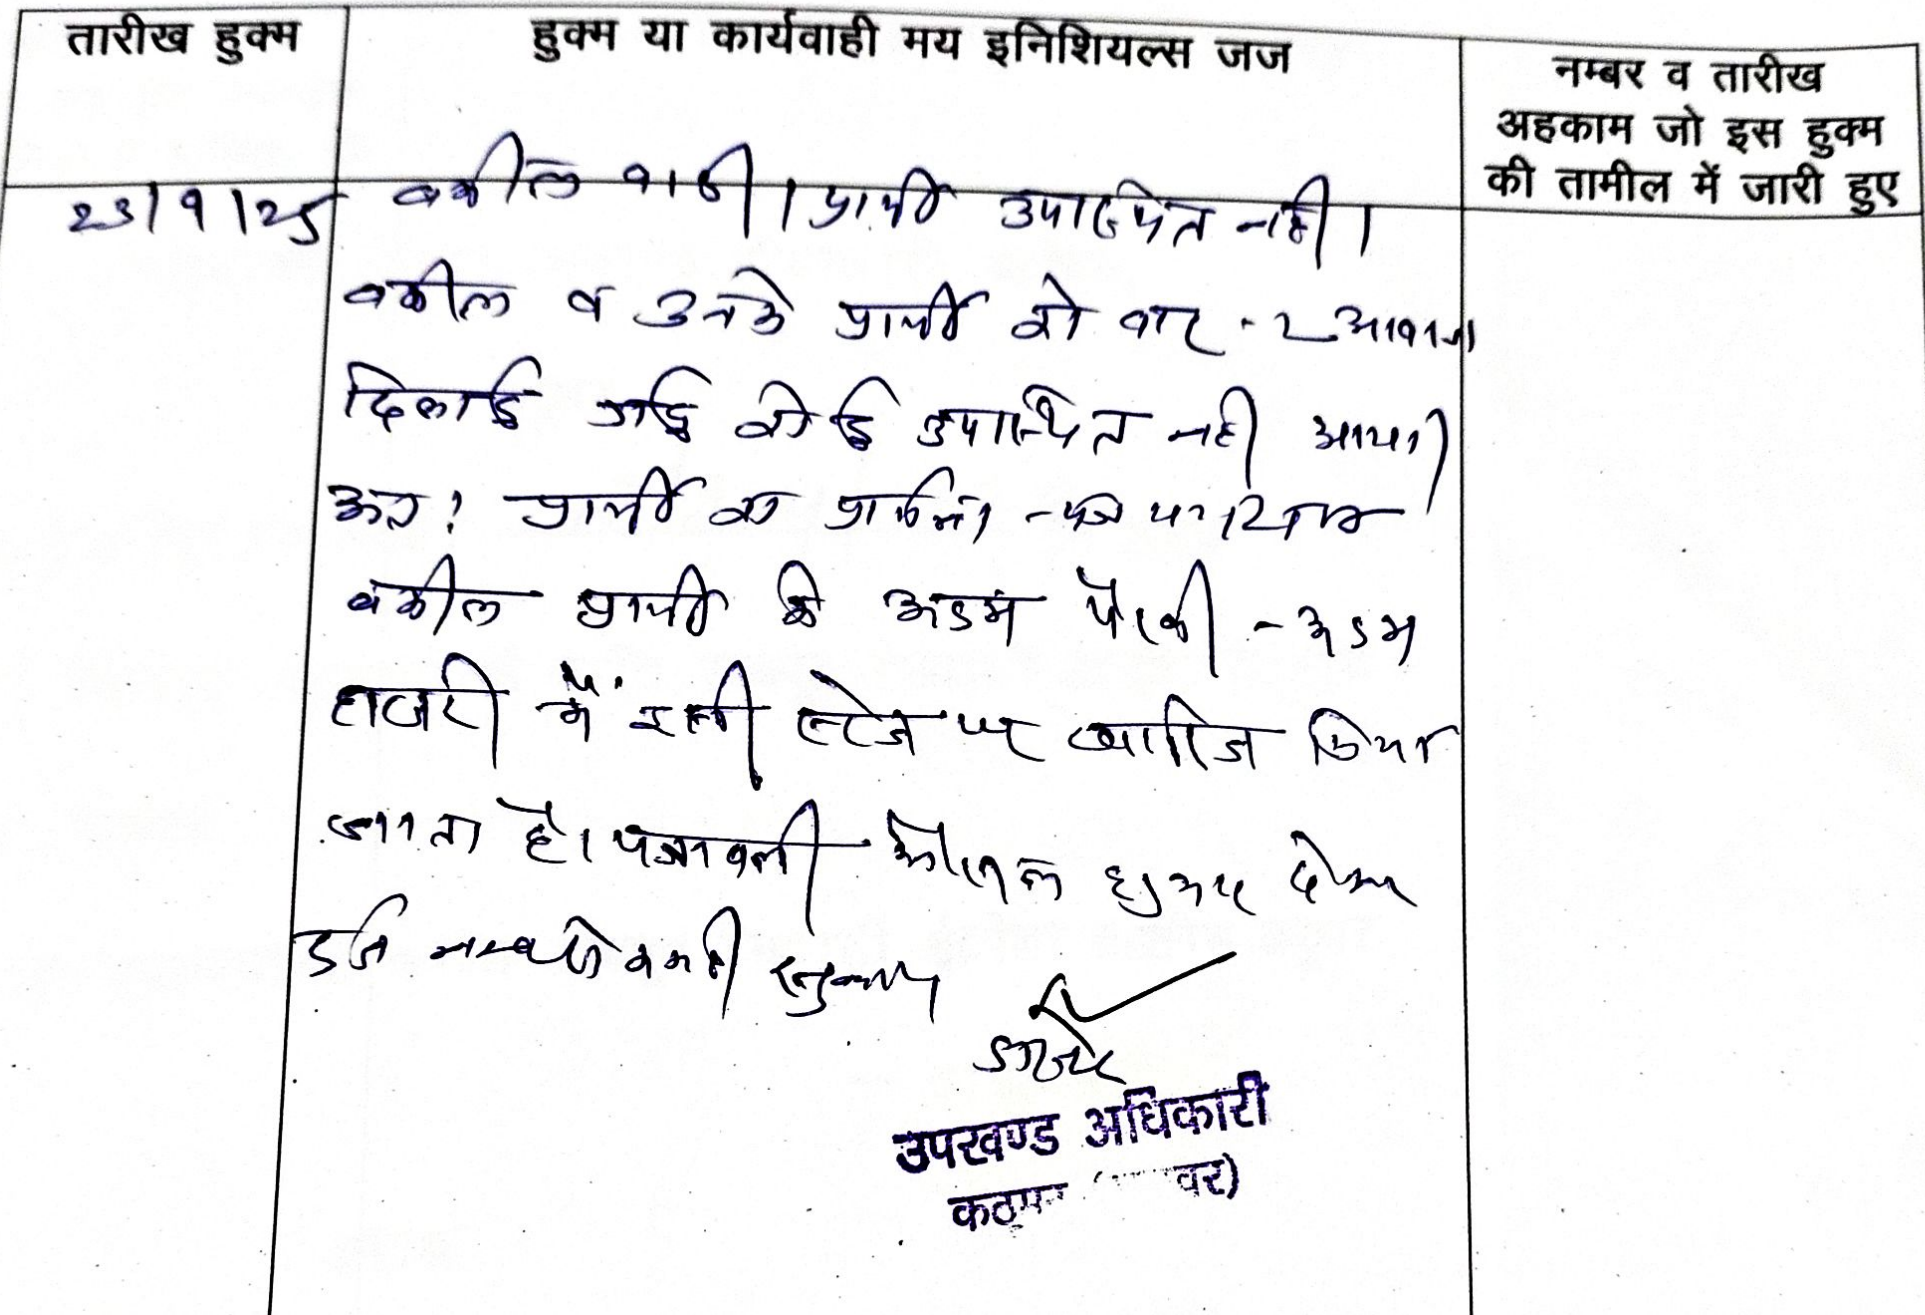 तारीख हुक्म
हुक्म या कार्यवाही मय इनिशियल्स जज
नम्बर व तारीख
अहकाम जो इस हुक्म
की तामील में जारी हुए
23/9/25
वकील वादी। प्रार्थी उपस्थित नही।
वकील व उनके प्रार्थी को बार-2 आवाज
दिलाई गई कोई उपस्थित नही आया।
अतः प्रार्थी का प्रार्थना-पत्र
वकील प्रार्थी के अदम पैरवी - अदम
हाजरी में इसी स्टेज पर खारिज किया
जाता है। पत्रावली फैसल शुमार होकर
उपखण्ड अधिकारी